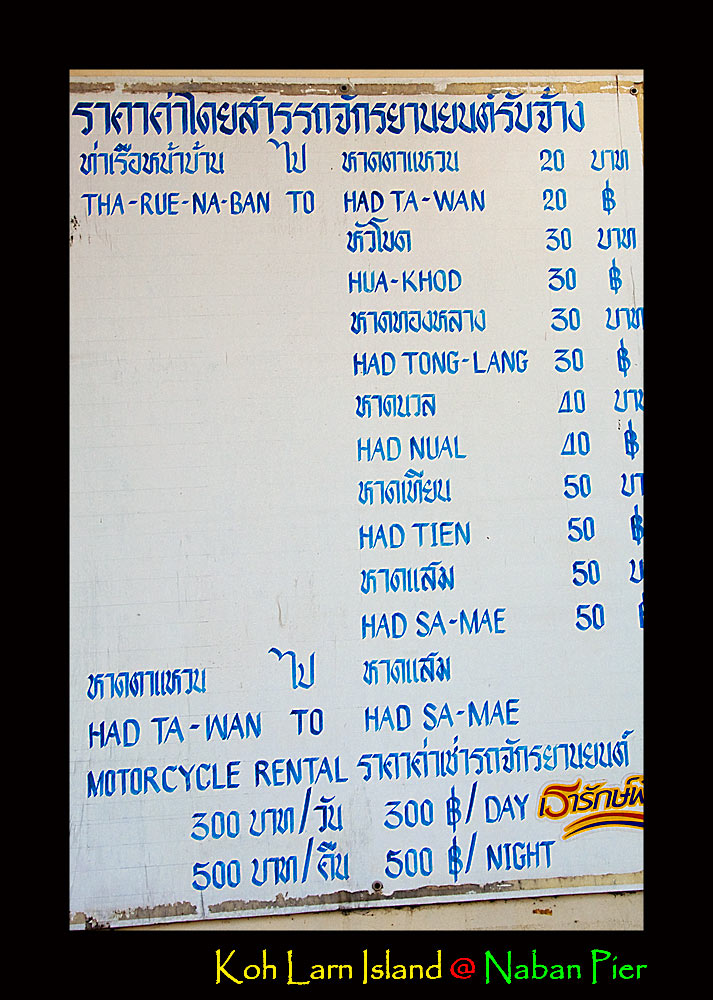 ราคาค่าโดยสารรถจักรยานยนต์รับจ้าง
ท่าเรือหน้าบ้าน ไป หาดตาแหวน 20 บาท
THA-RUE-NA-BAN TO HAD TA-WAN 20 ฿
หัวโขด 30 บาท
HUA-KHOD 30 ฿
หาดทองหลาง 30 บาท
HAD TONG-LANG 30 ฿
หาดนวล 40 บาท
HAD NUAL 40 ฿
หาดเทียน 50 บา
HAD TIEN 50 ฿
หาดแสม 50 บ
HAD SA-MAE 50 ฿
หาดตาแหวน ไป หาดแสม
HAD TA-WAN TO HAD SA-MAE
MOTORCYCLE RENTAL ราคาค่าเช่ารถจักรยานยนต์
300 บาท/วัน 300 ฿/DAY
เรารักษ์พ
500 บาท/คืน 500 ฿/NIGHT
Koh Larn Island @ Naban Pier